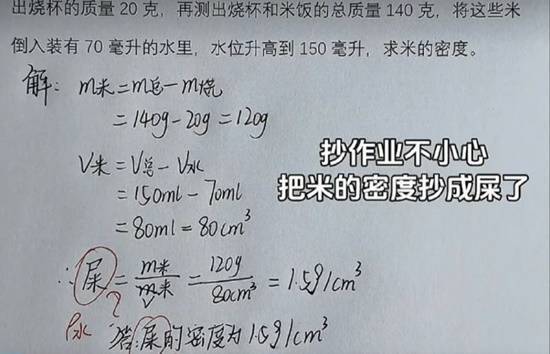 出烧杯的质量 20 克，再测出烧杯和米饭的总质量 140 克，将这些米
倒入装有 70 毫升的水里，水位升高到 150 毫升，求米的密度。
解：m米=m总-m烧
=140g-20g=120g
V米=V总-V水
=150ml-70ml
=80ml=80cm³
抄作业不小心
把米的密度抄成屎了
∴屎=m米/m米 V=120g/80cm³=1.5g/cm³
?
ρ水
答:屎的密度为1.5g/cm³